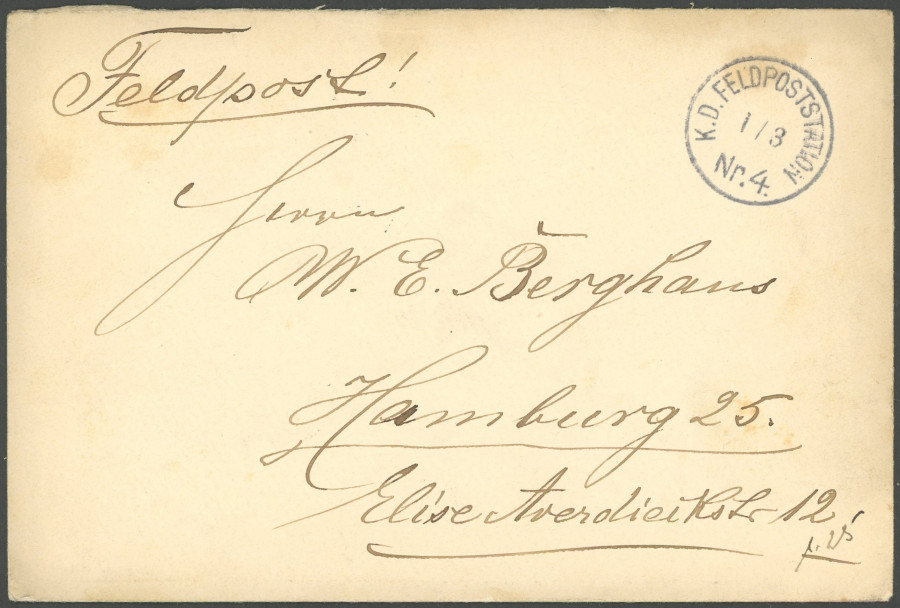 Feldpost!
K.D. FELDPOSTSTATION
1/3
Nr. 4.
Herrn
W. E. Berghaus
Hamburg 25.
Elise Averdieckstr 12